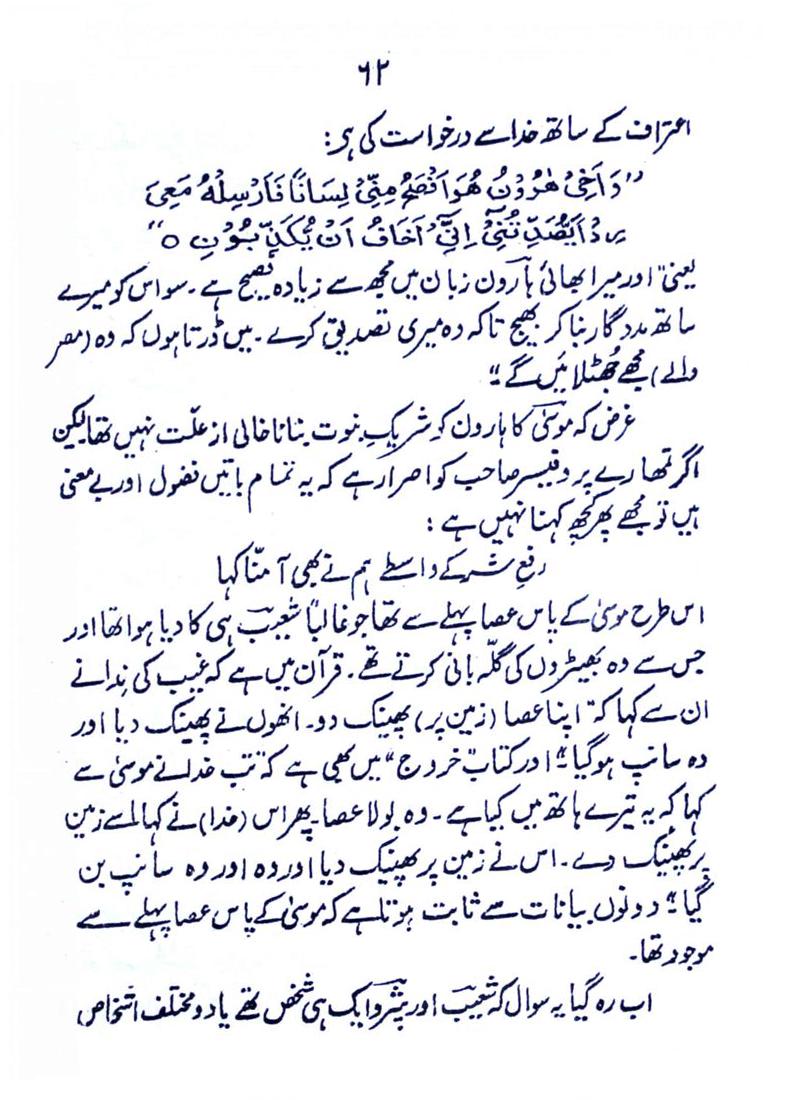 ۶۲
اعتراف کے ساتھ خدا سے درخواست کی ہے:
”وَاَخِیْ هٰرُوْنُ هُوَ اَفْصَحُ مِنِّیْ لِسَانًا فَاَرْسِلْهُ مَعِیَ
رِدْاً یُّصَدِّقُنِیْٓ اِنِّیْٓ اَخَافُ اَنْ یُّکَذِّبُوْنِ ○“
یعنی ”اور میرا بھائی ہارون زبان میں مجھ سے زیادہ فصیح ہے۔ سو اس کو میرے
ساتھ مددگار بنا کر بھیج تاکہ وہ میری تصدیق کرے۔ میں ڈرتا ہوں کہ وہ (مصر
والے) مجھے جھٹلائیں گے“
غرض کہ موسیٰؑ کا ہارون کو شریکِ نبوت بنانا خالی از علّت نہیں تھا لیکن
اگر تمھارے پروفیسر صاحب کو اصرار ہے کہ یہ تمام باتیں فضول اور بے معنی
ہیں تو مجھے پھر کچھ کہنا نہیں ہے:
رفعِ شر کے واسطے ہم نے بھی آمنّا کہا
اس طرح موسیٰ کے پاس عصا پہلے سے تھا جو غالباً شعیبؑ ہی کا دیا ہوا تھا اور
جس سے وہ بھیڑوں کی گلّہ بانی کرتے تھے۔ قرآن میں ہے کہ غیب کی نِدا نے
ان سے کہا کہ ”اپنا عصا (زمین پر) پھینک دو۔ انھوں نے پھینک دیا اور
وہ سانپ ہوگیا“ اور کتاب ”خروج“ میں بھی ہے کہ ”تب خدا نے موسیٰ سے
کہا کہ یہ تیرے ہاتھ میں کیا ہے۔ وہ بولا عصا۔ پھر اس (خدا) نے کہا اسے زمین
پر پھینک دے۔ اس نے زمین پر پھینک دیا اور وہ اور وہ سانپ بن
گیا“ دونوں بیانات سے ثابت ہوتا ہے کہ موسیٰ کے پاس عصا پہلے سے
موجود تھا۔
اب رہ گیا یہ سوال کہ شعیبؑ اور یثرو ایک ہی شخص تھے یا دو مختلف اشخاص